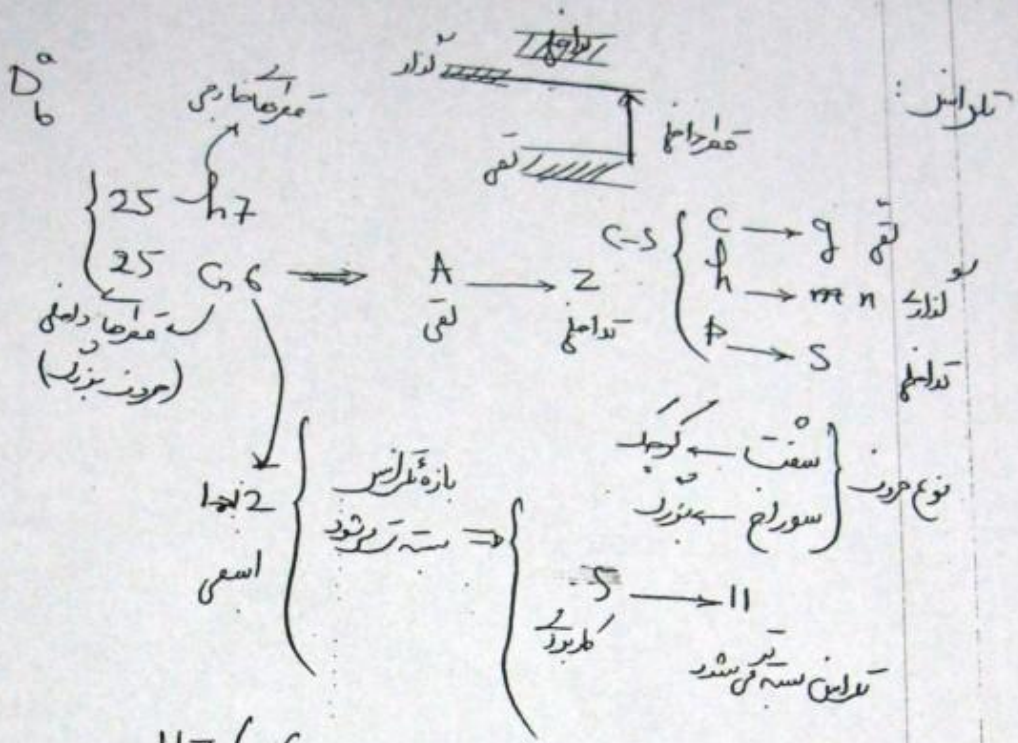 تلرانس:
تداخلی
گذار
قطر داخلی
لقی
D a b
قطرهای خارجی
25 h7
25 G6 ⇒ A → Z
لقی تداخلی
قطرهای داخلی
(حروف بزرگ)
c-s { c → g لقی
h → m n گذاری
p → s تداخلی
نوع حروف { شفت ← کوچک
سوراخ ← بزرگ
1→12
اسمی
بازه تلرانس
بسته تر می‌شود ⇒
5 → 11
کاربردی
تلرانس بسته تر می‌شود
H7/